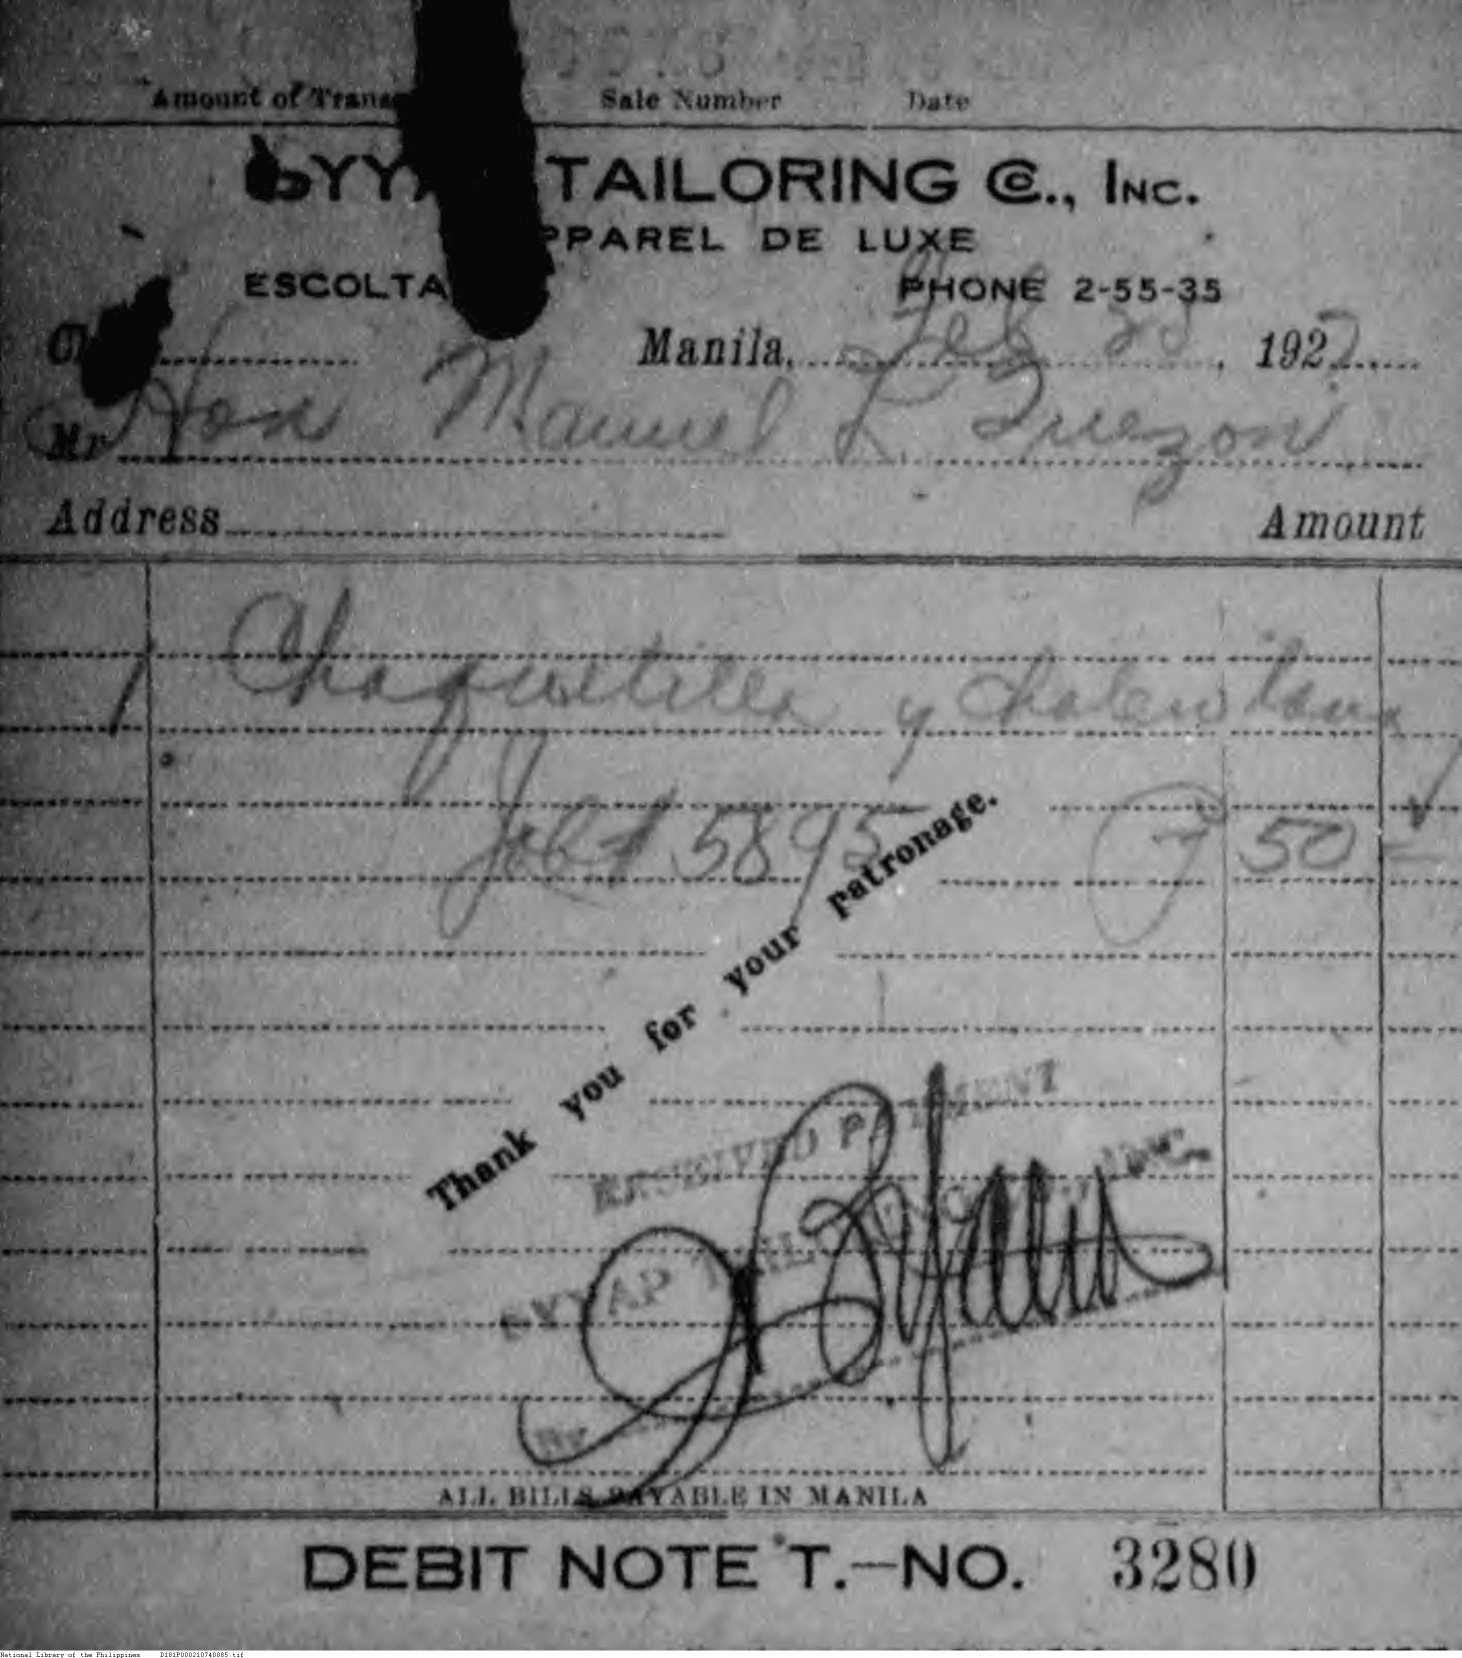 Amount of Trans
Sale Number
Date
YY TAILORING Co., INC.
APPAREL DE LUXE
ESCOLTA PHONE 2-55-35
Manila, Feb 28, 1927
Mr Hon Manuel L Quezon
Address Amount
1 Chaquetilla y chaleco
Job # 5895 P 50 -
Thank you for your patronage.
RECEIVED PAYMENT
OYYAP TAILORING CO., INC.
By
ALL BILLS PAYABLE IN MANILA
DEBIT NOTE T.—NO. 3280
National Library of the Philippines D181P000210740885.tif